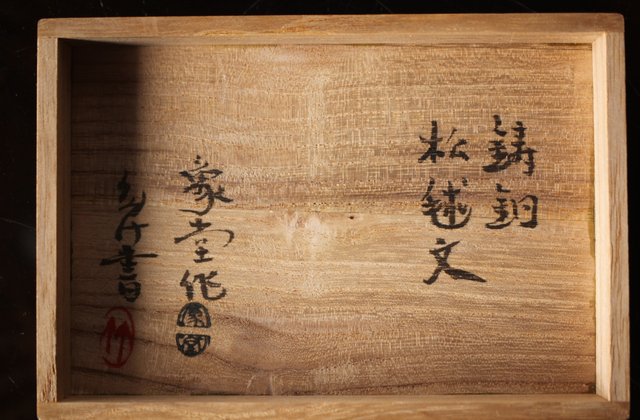 鋳銅
松毬文
象堂作
象堂
竹書
竹